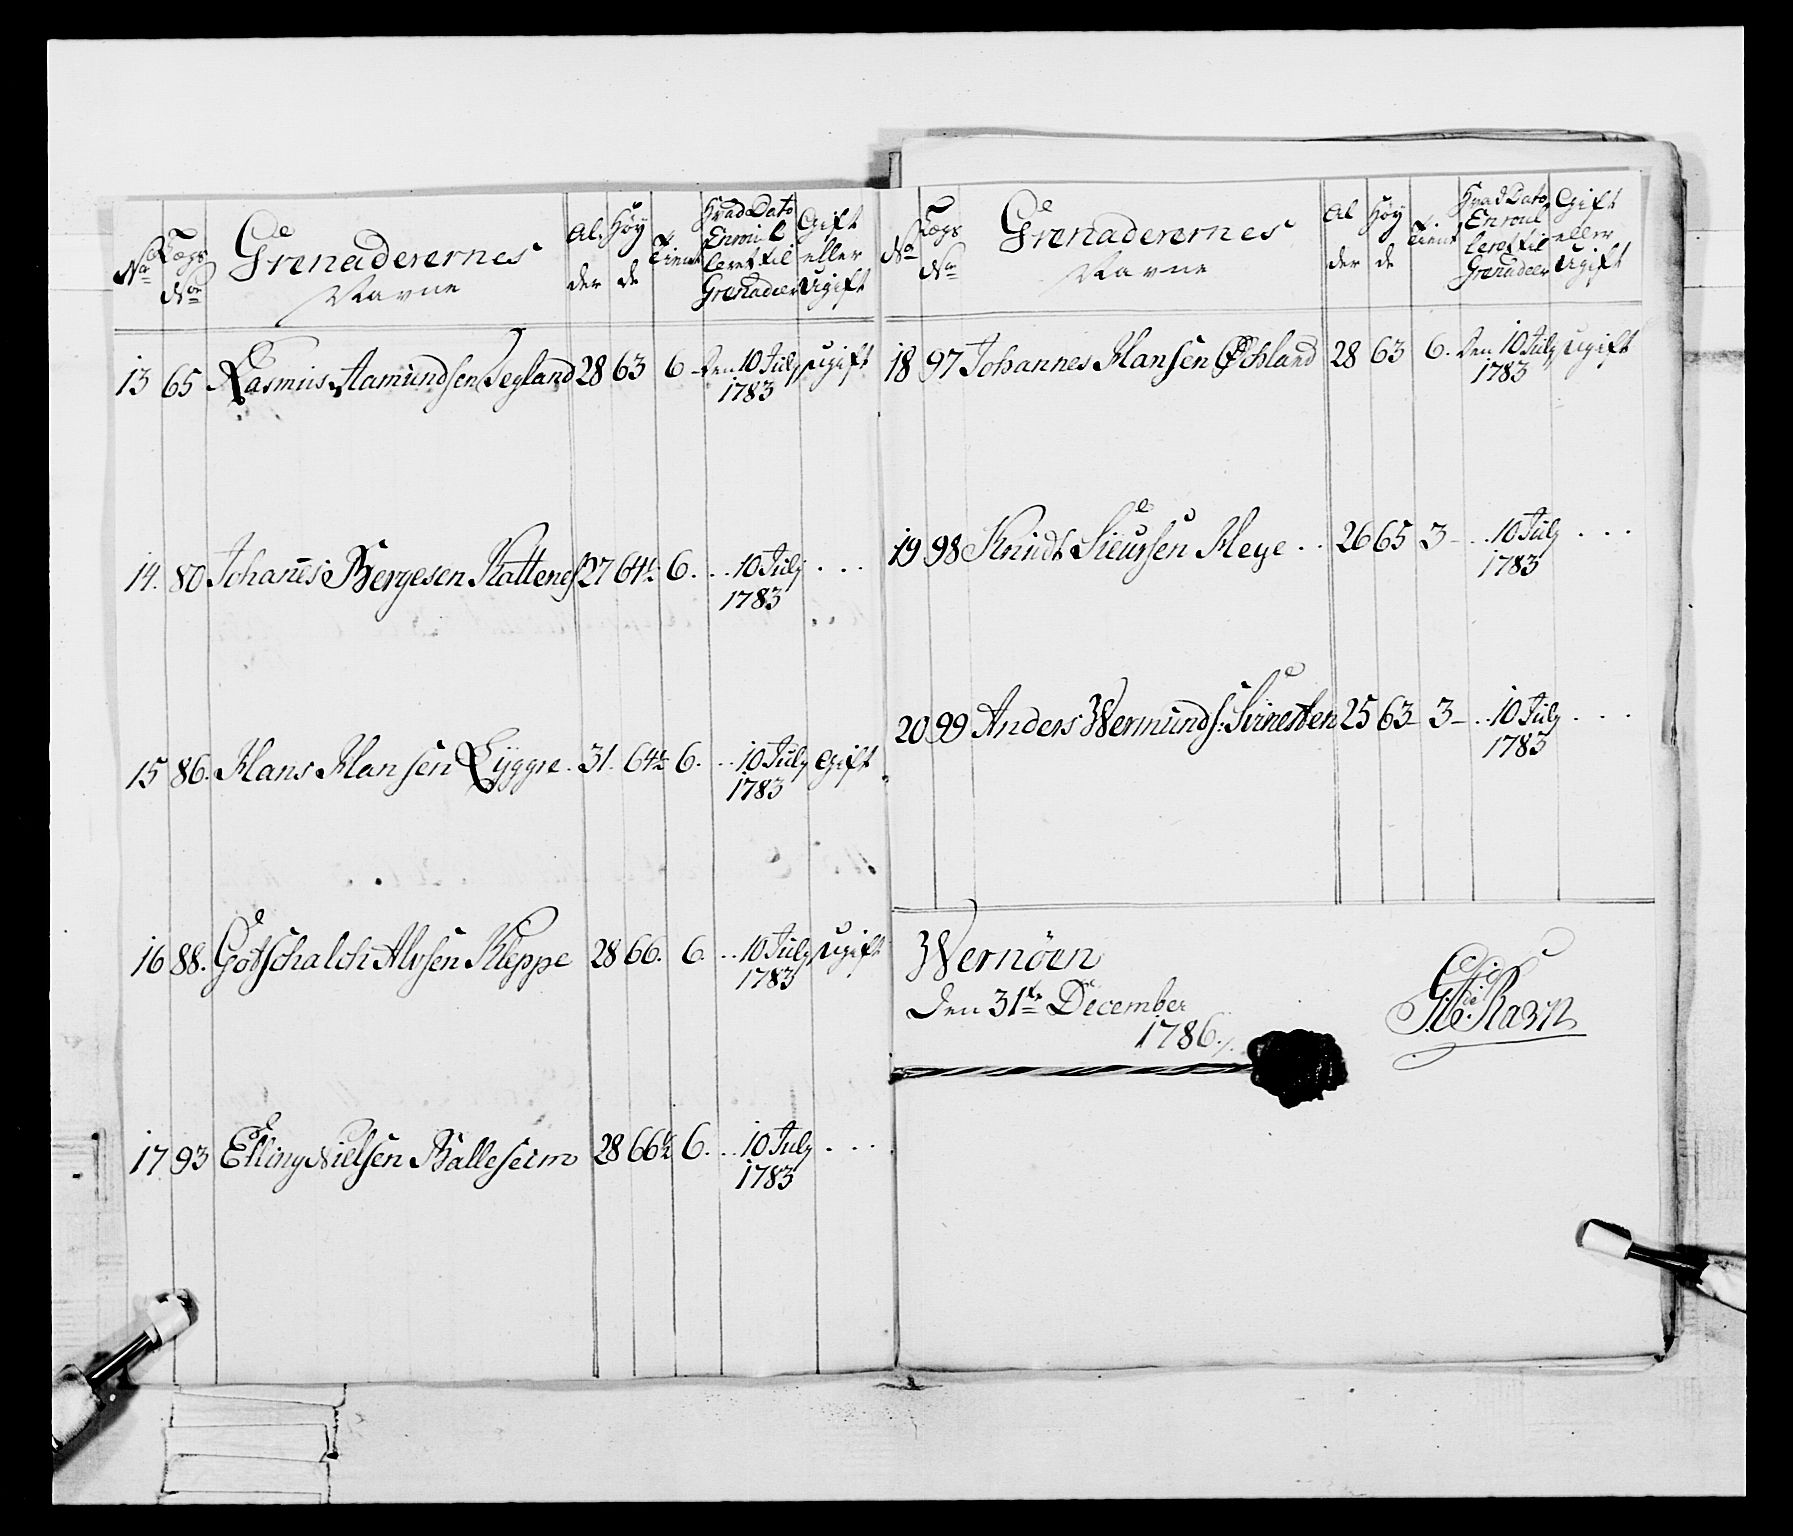 No
Lægs
No
Grenaderernes
Navne
Al
der
Høy
de
Tient
Hvad Dato
Enroul
leret til
Grenadeer
Gift
eller
Ugift
13 65 Rasmus Aamundsen Segland 28 63 6 - den 10 July Ugift
1783
14. 80 Johanes Bergesen Nattenes 27 64½ 6. .. 10 July ...
1783
15 86. Hans Hansen Lygre. 31. 64½ 6. .. 10 July Gift
1783
16 88. Gotschalch Alvsen Kleppe 28 66. 6. .. 10 July Ugift
1783
17 93 Elling Nielsen Balleseim 28 66½ 6. .. 10 July ...
1783
No
Lægs
No
Grenaderernes
Navne
Al
der
Høy
de
Tient
Hvad Dato
Enroul
leret til
Grenadeer
Gift
eller
Ugift
18 97 Johannes Hansen Østland 28 63 6. den 10 July Ugift
1783
19 98 Knudt Sieursen Heye .. 26 65 3 - .. 10 July ...
1783
20 99 Anders Wermunds: 25 63 - 3 - .. 10 July ...
1783
Wernøen
Den 31te December
1786./.
Ravn